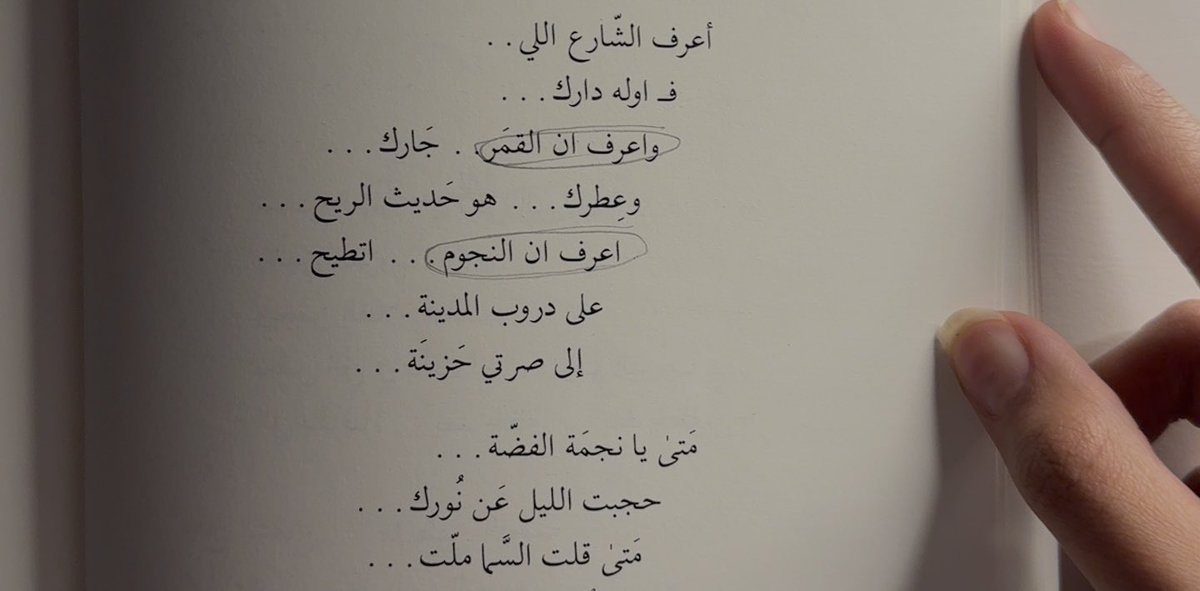 أعرف الشّارع اللي . .
فـ اوله دارك . . .
واعرف ان القمَر . . جَارك . . .
وعِطرك . . . هو حَديث الريح . . .
اعرف ان النجوم . . . اتطيح . . .
على دروب المدينة . . .
إلى صرتي حَزينَة . . .
مَتىٰ يا نجمَة الفضّة . . .
حجبت الليل عَن نُورك . . .
مَتىٰ قلت السَّما ملّت . . .